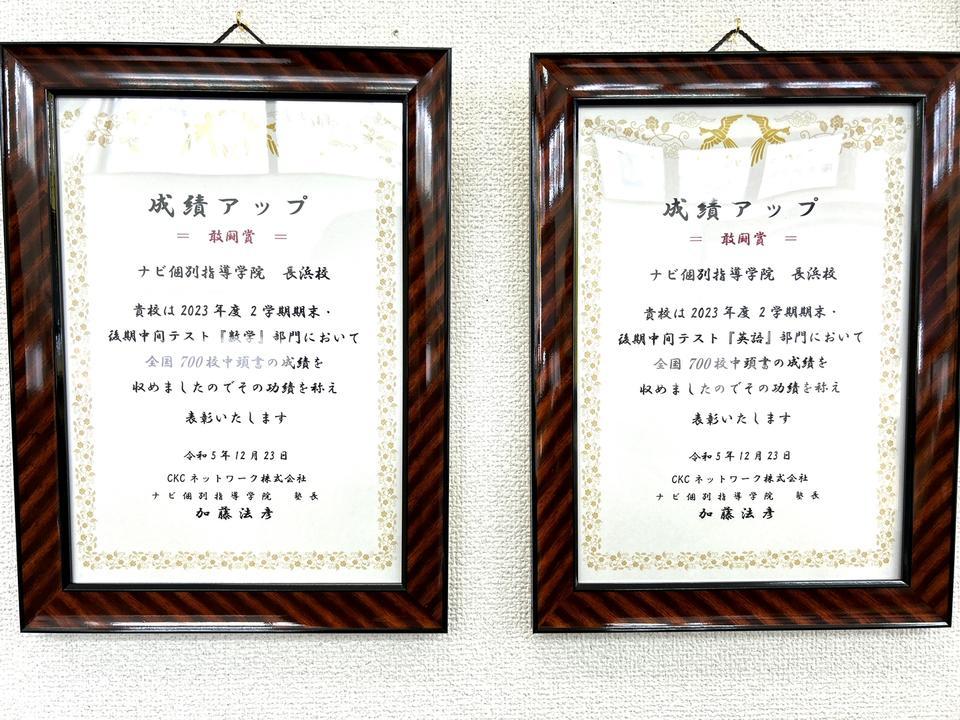 成績アップ
= 敢闘賞 =
ナビ個別指導学院 長浜校
貴校は2023年度 2学期期末・
後期中間テスト『数学』部門において
全国700校中頭書の成績を
収めましたのでその功績を称え
表彰いたします
令和5年12月23日
CKCネットワーク株式会社
ナビ個別指導学院 塾長
加藤法彦
成績アップ
= 敢闘賞 =
ナビ個別指導学院 長浜校
貴校は2023年度 2学期期末・
後期中間テスト『英語』部門において
全国700校中頭書の成績を
収めましたのでその功績を称え
表彰いたします
令和5年12月23日
CKCネットワーク株式会社
ナビ個別指導学院 塾長
加藤法彦